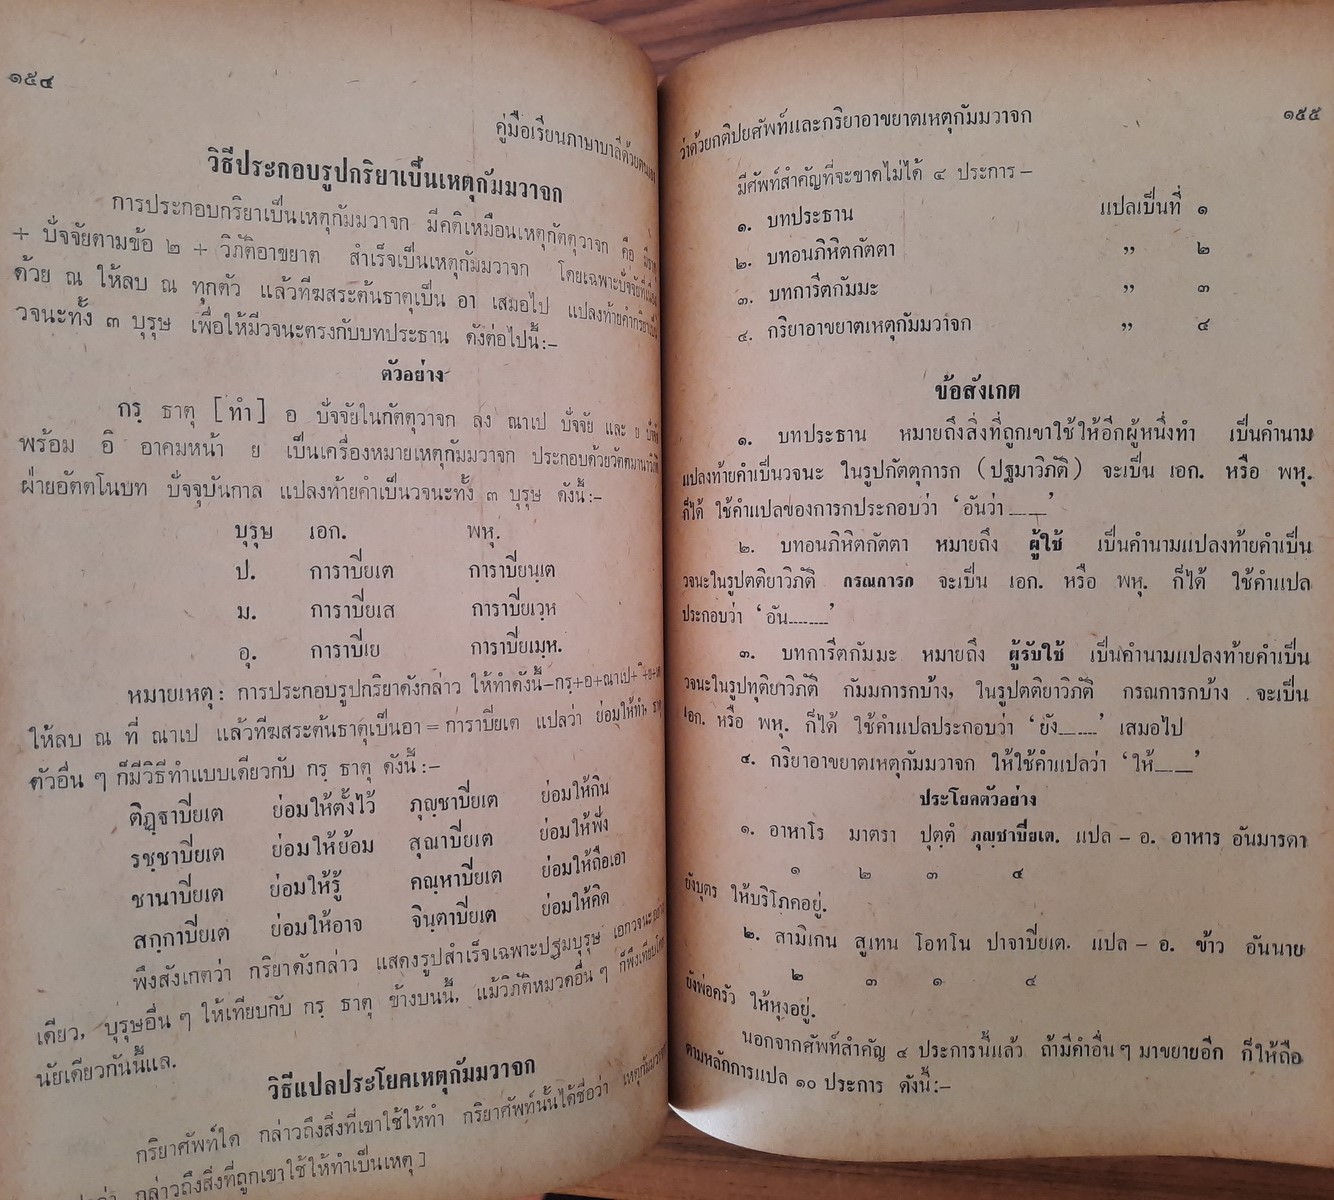 ๑๕๔
คู่มือเรียนภาษาบาลีด้วยตนเอง
วิธีประกอบรูปกริยาเป็นเหตุกัมมวาจก
การประกอบกริยาเป็นเหตุกัมมวาจก มีคติเหมือนเหตุกัตตุวาจก คือ มีธาตุ
+ ปัจจัยตามข้อ ๒ + วิภัติอาขยาต สำเร็จเป็นเหตุกัมมวาจก โดยเฉพาะปัจจัยที่เนื่อง
ด้วย ณ ให้ลบ ณ ทุกตัว แล้วทีฆสระต้นธาตุเป็น อา เสมอไป แปลงท้ายคำกริยาเป็น
วจนะทั้ง ๓ บุรุษ เพื่อให้มีวจนะตรงกับบทประธาน ดังต่อไปนี้:–
ตัวอย่าง
กรฺ ธาตุ [ทำ] อ ปัจจัยในกัตตุวาจก ลง ณาเป ปัจจัย และ ย ปัจจัย
พร้อม อิ อาคมหน้า ย เป็นเครื่องหมายเหตุกัมมวาจก ประกอบด้วยวัตตมานาวิภัติ
ฝ่ายอัตตโนบท ปัจจุบันกาล แปลงท้ายคำเป็นวจนะทั้ง ๓ บุรุษ ดังนี้:–
บุรุษ เอก. พหุ.
ป. การาปิยเต การาปิยนฺเต
ม. การาปิยเส การาปิยเวฺห
อุ. การาปิเย การาปิยเมฺห.
หมายเหตุ: การประกอบรูปกริยาดังกล่าว ให้ทำดังนี้–กรฺ+อ+ณาเป+
ให้ลบ ณ ที่ ณาเป แล้วทีฆสระต้นธาตุเป็นอา = การาปิยเต แปลว่า ย่อมให้ทำ, ธาตุ
ตัวอื่น ๆ ก็มีวิธีทำแบบเดียวกับ กรฺ ธาตุ ดังนี้:–
ติฏฺฐาปิยเต ย่อมให้ตั้งไว้ ภุญฺชาปิยเต ย่อมให้กิน
รชฺชาปิยเต ย่อมให้ย้อม สุณาปิยเต ย่อมให้ฟัง
ชานาปิยเต ย่อมให้รู้ คณฺหาปิยเต ย่อมให้ถือเอา
สกฺกาปิยเต ย่อมให้อาจ จินฺตาปิยเต ย่อมให้คิด
พึงสังเกตว่า กริยาดังกล่าว แสดงรูปสำเร็จเฉพาะปฐมบุรุษ เอกวจนะอย่าง
เดียว, บุรุษอื่น ๆ ให้เทียบกับ กรฺ ธาตุ ข้างบนนี้, แม้วิภัติหมวดอื่น ๆ ก็พึงเทียบโดย
นัยเดียวกันนี้แล.
วิธีแปลประโยคเหตุกัมมวาจก
กริยาศัพท์ใด กล่าวถึงสิ่งที่เขาใช้ให้ทำ กริยาศัพท์นั้นได้ชื่อว่า เหตุกัมมวาจก
กล่าวถึงสิ่งที่ถูกเขาใช้ให้ทำเป็นเหตุ ]
ว่าด้วยกติปยศัพท์และกริยาอาขยาตเหตุกัมมวาจก
๑๕๕
มีศัพท์สำคัญที่จะขาดไม่ได้ ๔ ประการ –
๑. บทประธาน แปลเป็นที่ ๑
๒. บทอนภิหิตกัตตา ” ๒
๓. บทการีตกัมมะ ” ๓
๔. กริยาอาขยาตเหตุกัมมวาจก ” ๔
ข้อสังเกต
๑. บทประธาน หมายถึงสิ่งที่ถูกเขาใช้ให้อีกผู้หนึ่งทำ เป็นคำนาม
แปลงท้ายคำเป็นวจนะ ในรูปกัตตุการก (ปฐมาวิภัติ) จะเป็น เอก. หรือ พหุ.
ก็ได้ ใช้คำแปลของการกประกอบว่า ‘อันว่า......’
๒. บทอนภิหิตกัตตา หมายถึง ผู้ใช้ เป็นคำนามแปลงท้ายคำเป็น
วจนะในรูปตติยาวิภัติ กรณการก จะเป็น เอก. หรือ พหุ. ก็ได้ ใช้คำแปล
ประกอบว่า ‘อัน........’
๓. บทการีตกัมมะ หมายถึง ผู้รับใช้ เป็นคำนามแปลงท้ายคำเป็น
วจนะในรูปทุติยาวิภัติ กัมมการกบ้าง, ในรูปตติยาวิภัติ กรณการกบ้าง จะเป็น
เอก. หรือ พหุ. ก็ได้ ใช้คำแปลประกอบว่า ‘ยัง......’ เสมอไป
๔. กริยาอาขยาตเหตุกัมมวาจก ให้ใช้คำแปลว่า ‘ให้......’
ประโยคตัวอย่าง
๑. อาหาโร มาตรา ปุตฺตํ ภุญฺชาปิยเต. แปล – อ. อาหาร อันมารดา
๑ ๒ ๓ ๔
ยังบุตร ให้บริโภคอยู่.
๒. สามิเกน สูเทน โอทโน ปาจาปิยเต. แปล – อ. ข้าว อันนาย
๒ ๓ ๑ ๔
ยังพ่อครัว ให้หุงอยู่.
นอกจากศัพท์สำคัญ ๔ ประการนี้แล้ว ถ้ามีคำอื่นๆ มาขยายอีก ก็ให้ถือ
ตามหลักการแปล ๑๐ ประการ ดังนี้:–